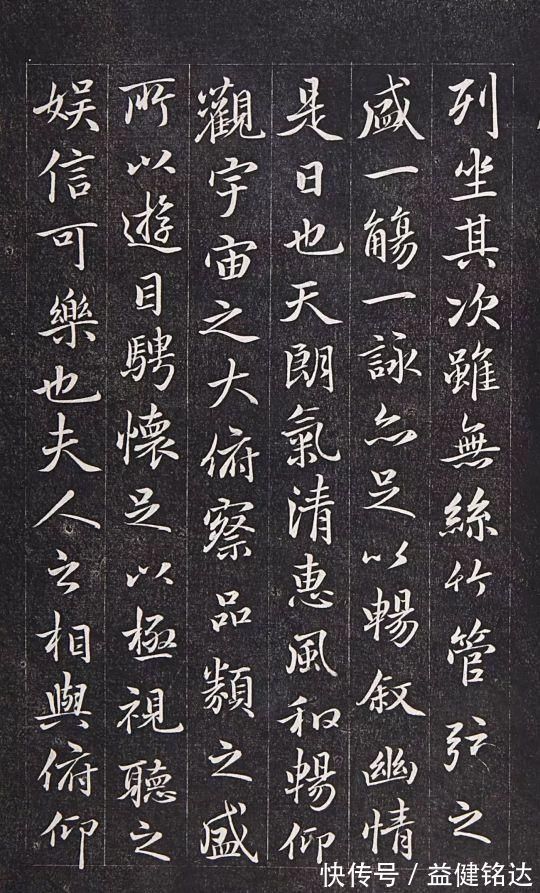 列坐其次雖無絲竹管弦之
盛一觴一詠亦足以暢敘幽情
是日也天朗氣清惠風和暢仰
觀宇宙之大俯察品類之盛
所以遊目騁懷足以極視聽之
娛信可樂也夫人之相與俯仰
快传号 / 益健铭达